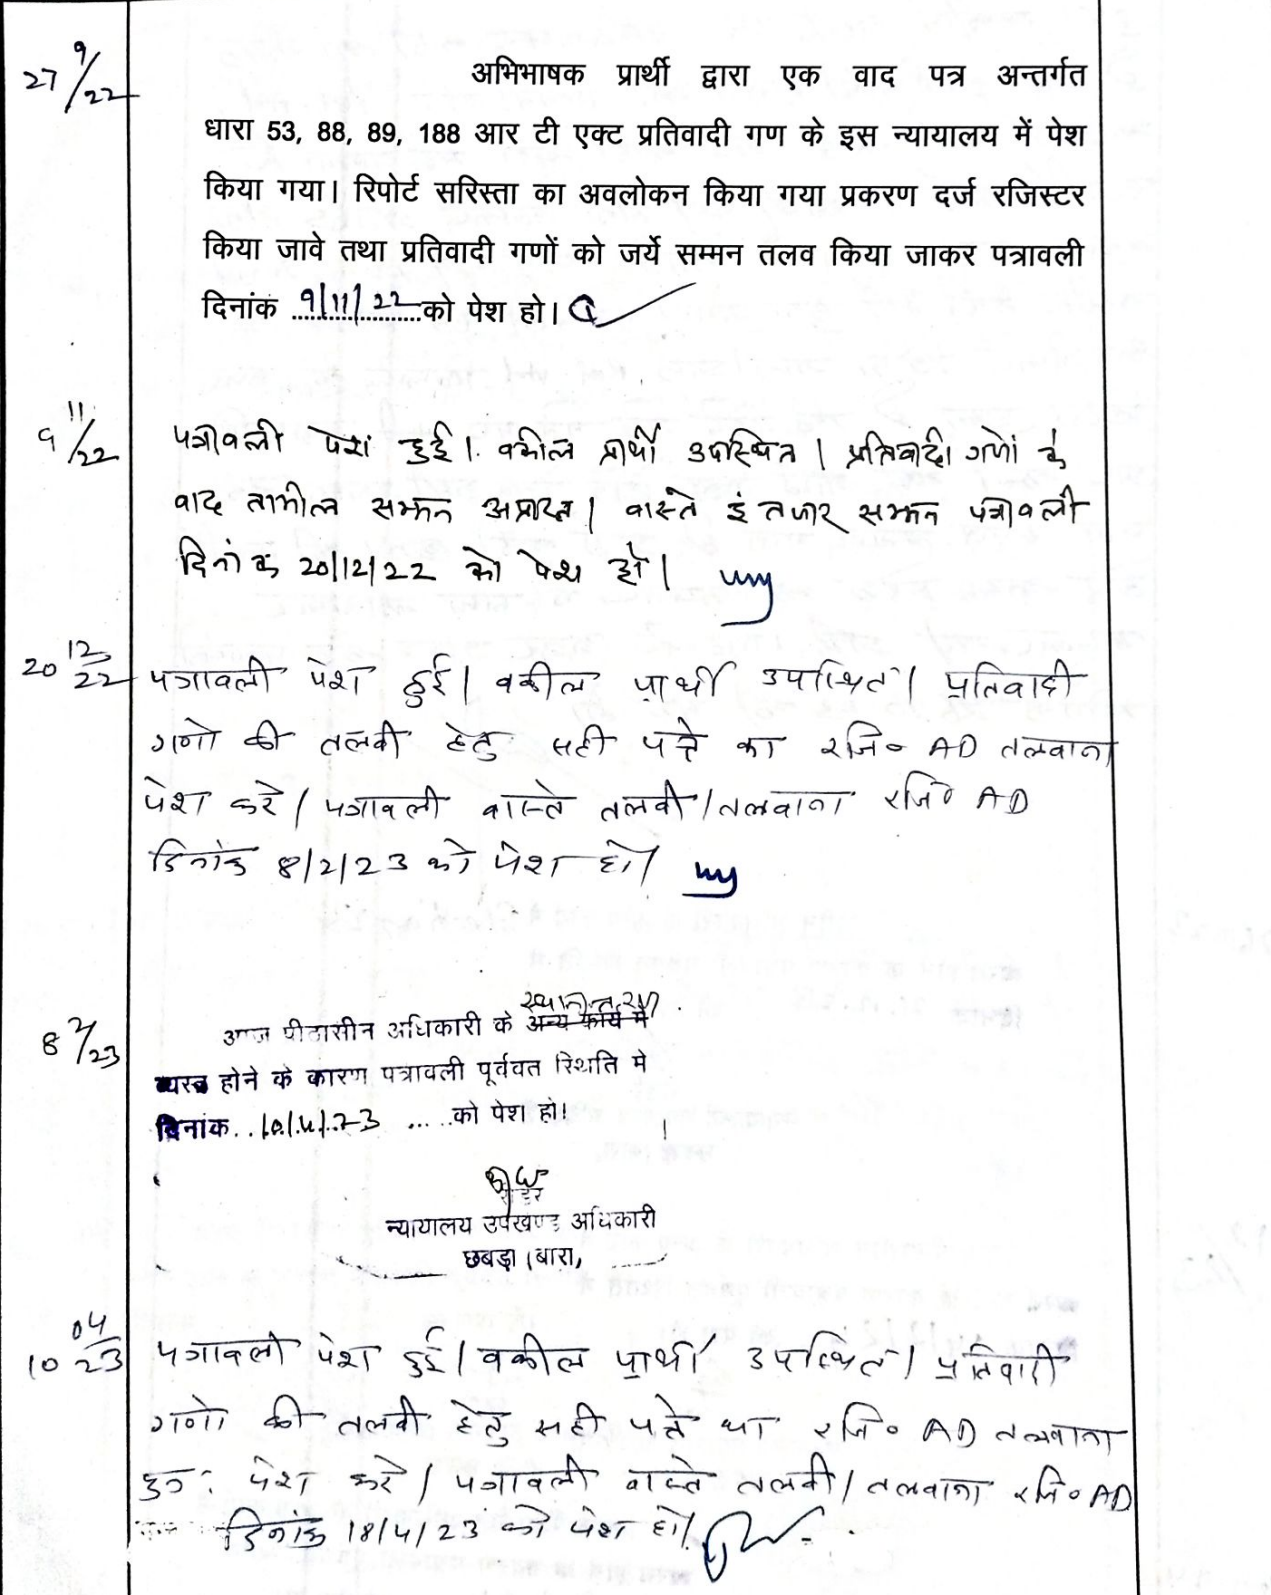 27 9/22
अभिभाषक प्रार्थी द्वारा एक वाद पत्र अन्तर्गत
धारा 53, 88, 89, 188 आर टी एक्ट प्रतिवादी गण के इस न्यायालय में पेश
किया गया। रिपोर्ट सरिस्ता का अवलोकन किया गया प्रकरण दर्ज रजिस्टर
किया जावे तथा प्रतिवादी गणों को जर्ये सम्मन तलव किया जाकर पत्रावली
दिनांक 9/11/22 को पेश हो।
9 11/22
पत्रावली पेश हुई। वकील प्रार्थी उपस्थित। प्रतिवादी गणों के
वाद तामील सम्मन अप्राप्त। वास्ते इंतजार सम्मन पत्रावली
दिनांक 20/12/22 को पेश हो।
20 12/22
पत्रावली पेश हुई। वकील प्रार्थी उपस्थित। प्रतिवादी
गणो की तलवी हेतु सही पत्ते का रजि० AD तलवाना
पेश करे। पत्रावली वास्ते तलवी/तलवाना रजि० AD
दिनांक 8/2/23 को पेश हो।
8 2/23
स्थानान्तरण
आज पीठासीन अधिकारी के अन्य कार्य मे
व्यस्त होने के कारण पत्रावली पूर्ववत स्थिति मे
दिनांक..10/4/23 .....को पेश हो।
रीडर
न्यायालय उपखण्ड अधिकारी
छबड़ा (बारा,
10 04/23
पत्रावली पेश हुई। वकील प्रार्थी उपस्थित। प्रतिवादी
गणो की तलवी हेतु सही पत्ते का रजि० AD तलवाना
पुनः पेश करे। पत्रावली वास्ते तलवी/तलवाना रजि० AD
दिनांक 18/4/23 को पेश हो।